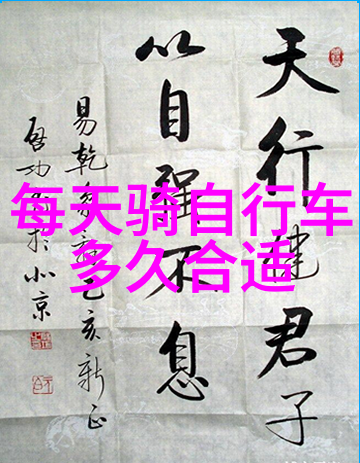 每天骑自行车
多久合适
天行健君子
以自强不息
易乾象 己亥新正
启功 于北京